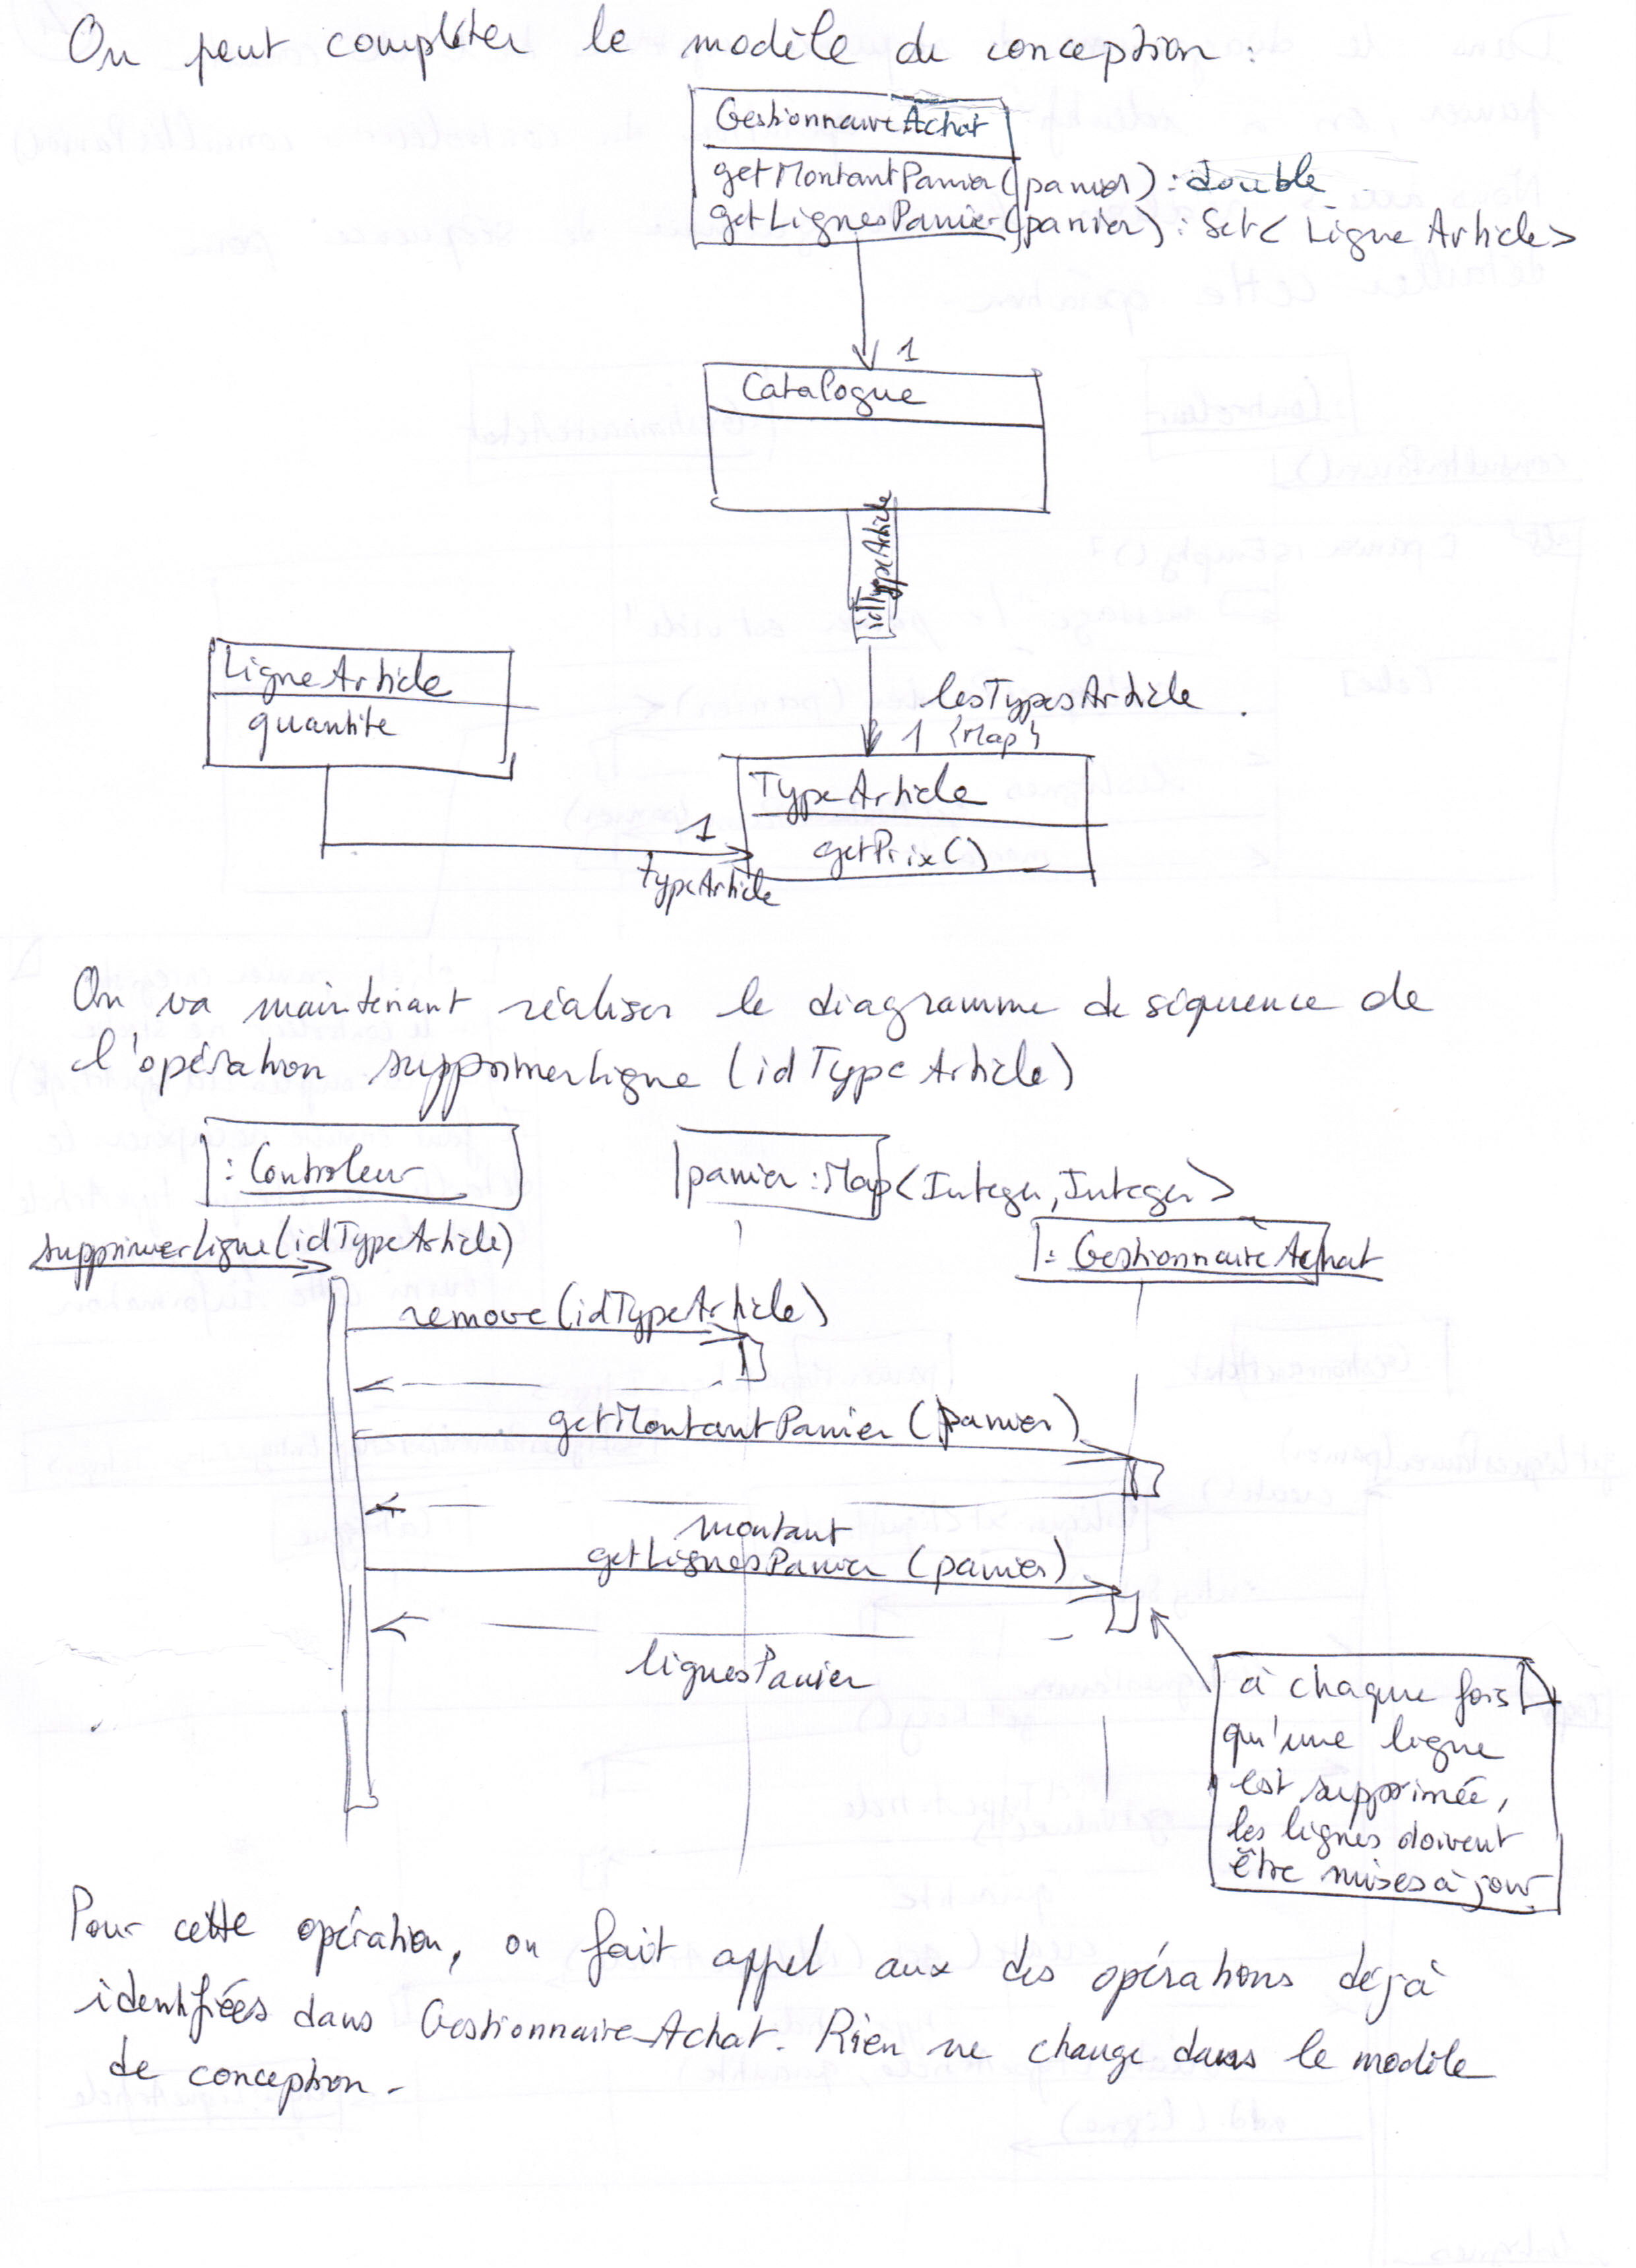 On peut compléter le modèle de conception :
GestionnaireAchat
getMontantPanier(panier) : double
getLignesPanier(panier) : Set<LigneArticle>
1
Catalogue
idTypeArticle
LigneArticle
quantité
lesTypesArticle
1 {Map}
TypeArticle
getPrix()
1
typeArticle
On va maintenant réaliser le diagramme de séquence de
l'opération supprimerLigne (idTypeArticle)
: Controleur
panier : Map<Integer, Integer>
supprimerLigne(idTypeArticle)
: GestionnaireAchat
remove(idTypeArticle)
getMontantPanier (panier)
montant
getLignesPanier (panier)
lignesPanier
à chaque fois
qu'une ligne
est supprimée,
les lignes doivent
être mises à jour
Pour cette opération, on fait appel aux des opérations déjà
identifiées dans GestionnaireAchat. Rien ne change dans le modèle
de conception.